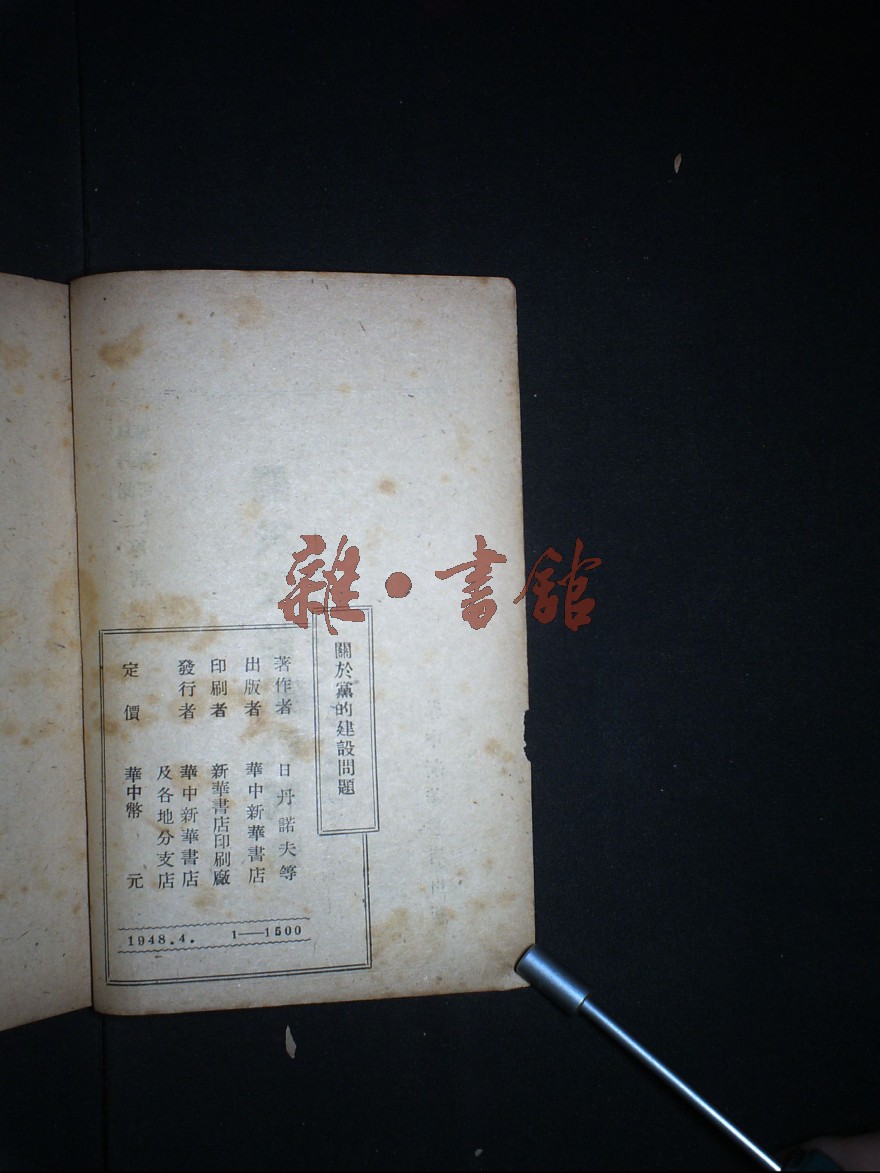 雜·書館
關於黨的建設問題
著作者 日丹諾夫等
出版者 華中新華書店
印刷者 新華書店印刷廠
發行者 華中新華書店
及各地分支店
定價 華中幣 元
1948.4. 1——1500